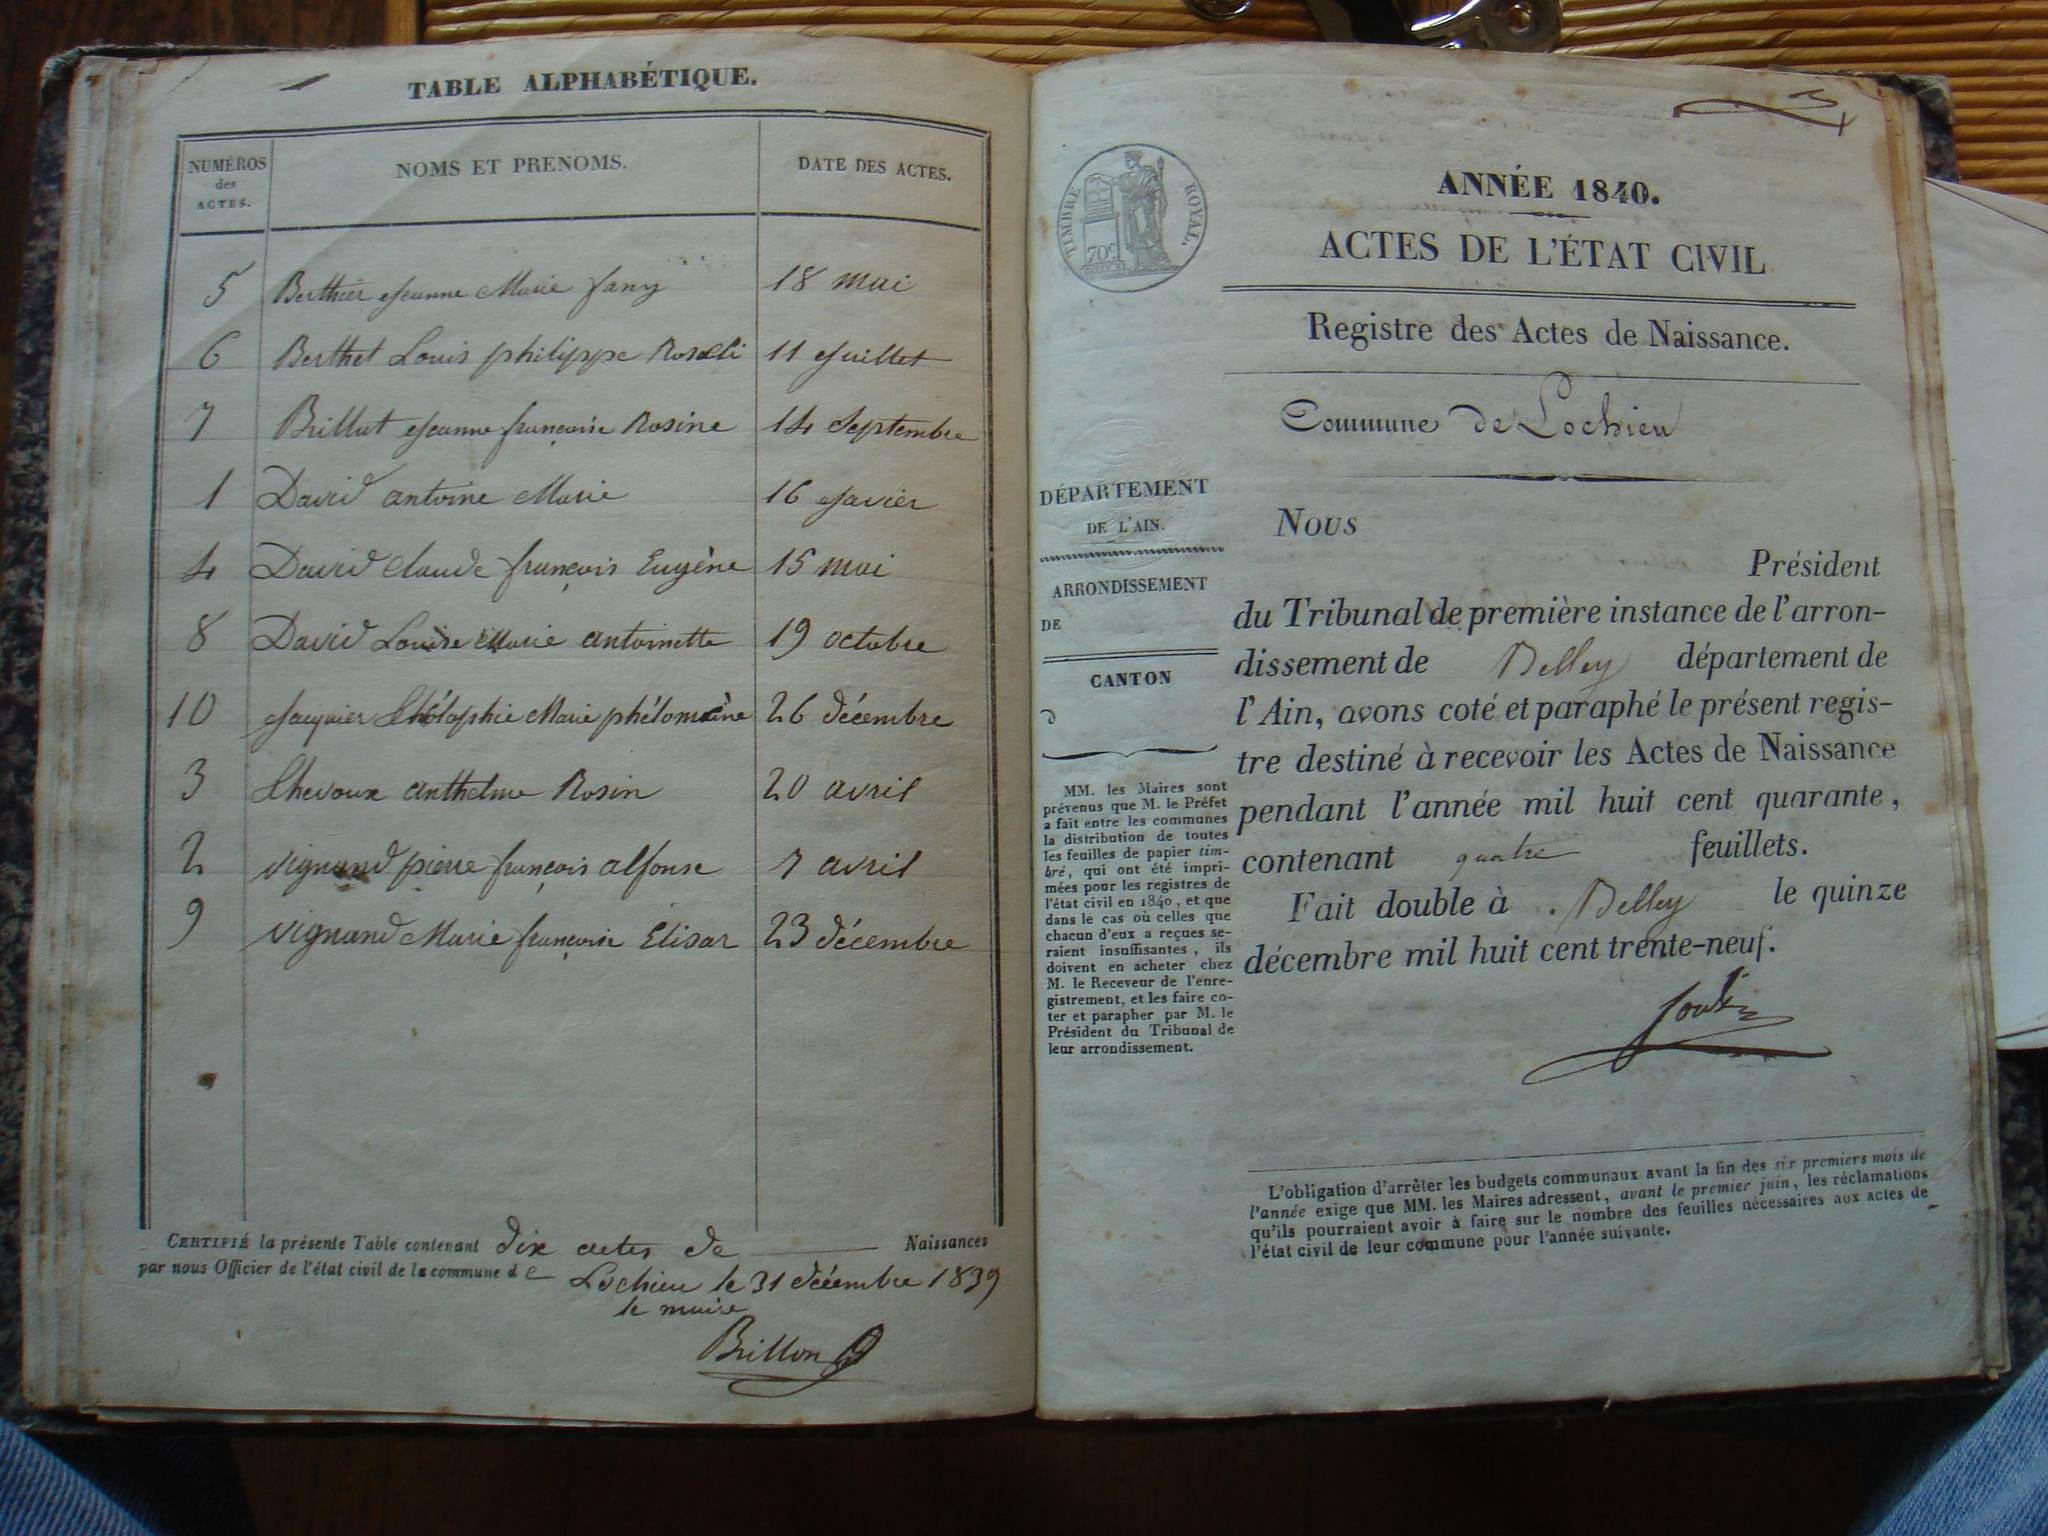 TABLE ALPHABÉTIQUE.
NUMÉROS des ACTES. NOMS ET PRENOMS. DATE DES ACTES.
5 Berthier Jeanne Marie fany 18 mai
6 Berthet Louis philippe 11 Juillet
7 Brillat Jeanne françoise Rosine 14 Septembre
1 David antoine Marie 16 Javier
4 David Claude françois Eugène 15 mai
8 David Louise Marie antoinette 19 octobre
10 Jacquier Marie 26 décembre
3 anthelme Rosin 20 avril
2 vignand pierre françois alfonse 7 avril
9 vignand Marie françoise Elisar 23 décembre
CERTIFIÉ la présente Table contenant dix actes de Naissances
par nous Officier de l'état civil de la commune de Lochieu le 31 décembre 1839
le maire
Brillon
ANNÉE 1840.
ACTES DE L'ÉTAT CIVIL
Registre des Actes de Naissance.
Commune de Lochieu
TIMBRE ROYAL.
70c
DÉPARTEMENT
DE L'AIN.
ARRONDISSEMENT
DE
CANTON
D
MM. les Maires sont
prévenus que M. le Préfet
a fait entre les communes
la distribution de toutes
les feuilles de papier tim-
bré, qui ont été impri-
mées pour les registres de
l'état civil en 1840, et que
dans le cas où celles que
chacun d'eux a reçues se-
raient insuffisantes, ils
doivent en acheter chez
M. le Receveur de l'enre-
gistrement, et les faire co-
ter et parapher par M. le
Président du Tribunal de
leur arrondissement.
Nous
Président
du Tribunal de première instance de l'arron-
dissement de Belley département de
l'Ain, avons coté et paraphé le présent regis-
tre destiné à recevoir les Actes de Naissance
pendant l'année mil huit cent quarante,
contenant quatre feuillets.
Fait double à Belley le quinze
décembre mil huit cent trente-neuf.
L'obligation d'arrêter les budgets communaux avant la fin des six premiers mois de
l'année exige que MM. les Maires adressent, avant le premier juin, les réclamations
qu'ils pourraient avoir à faire sur le nombre des feuilles nécessaires aux actes de
l'état civil de leur commune pour l'année suivante.